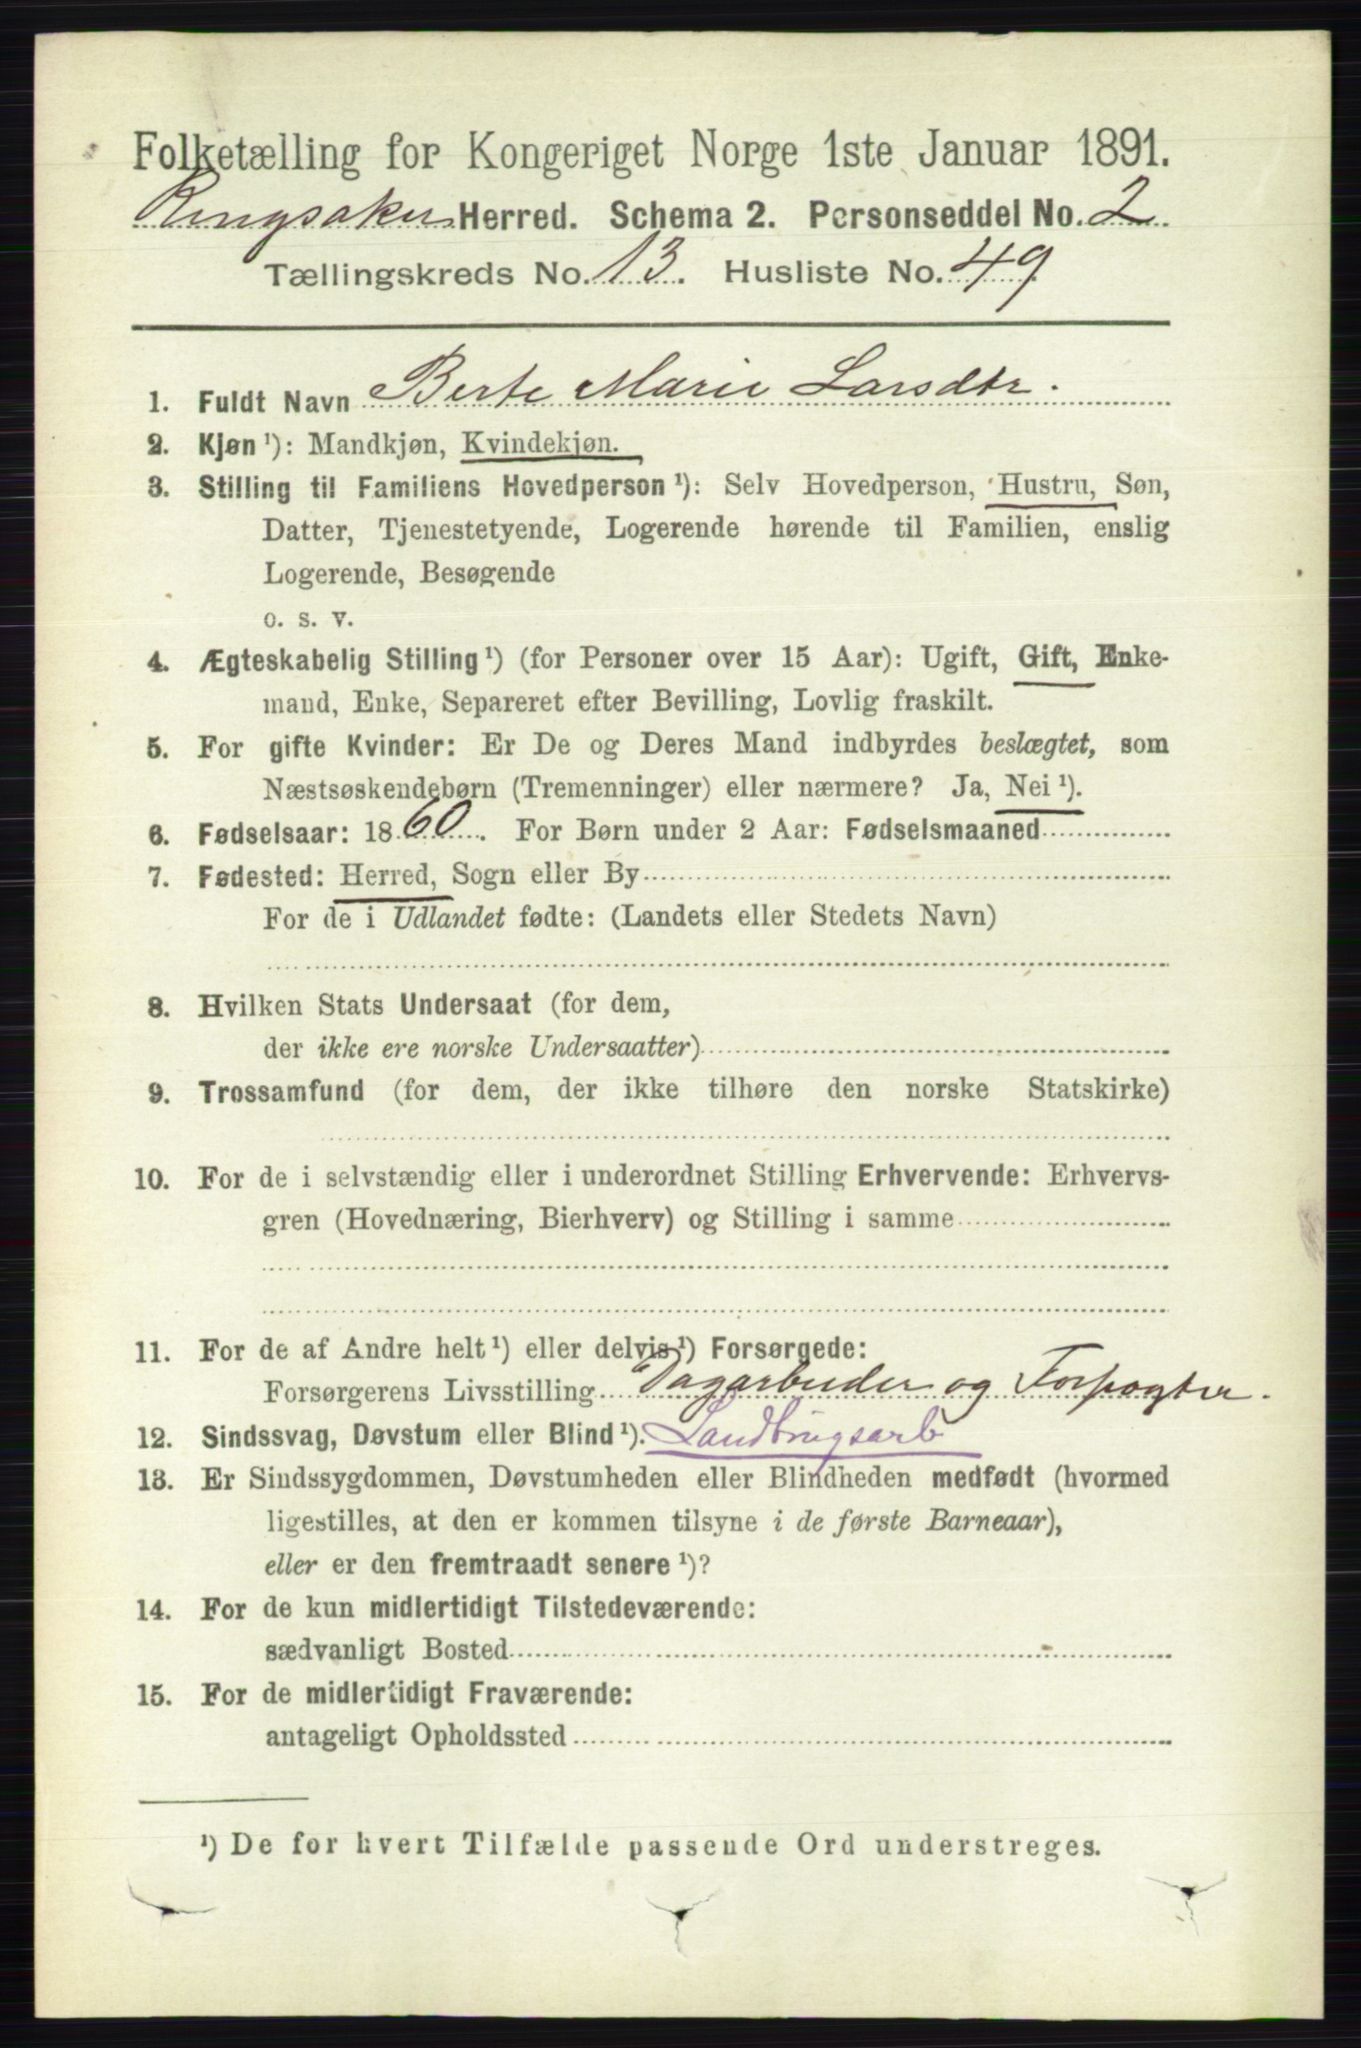 Folketælling for Kongeriget Norge 1ste Januar 1891.
Ringsaker Herred. Schema 2. Personseddel No. 2
Tællingskreds No. 13. Husliste No. 49
1. Fuldt Navn Berte Marie Larsdtr.
2. Kjøn ¹): Mandkjøn, Kvindekjøn.
3. Stilling til Familiens Hovedperson ¹): Selv Hovedperson, Hustru, Søn,
Datter, Tjenestetyende, Logerende hørende til Familien, enslig
Logerende, Besøgende
o. s. v.
4. Ægteskabelig Stilling ¹) (for Personer over 15 Aar): Ugift, Gift, Enke-
mand, Enke, Separeret efter Bevilling, Lovlig fraskilt.
5. For gifte Kvinder: Er De og Deres Mand indbyrdes beslægtet, som
Næstsøskendebørn (Tremenninger) eller nærmere? Ja, Nei ¹).
6. Fødselsaar: 1860. For Børn under 2 Aar: Fødselsmaaned
7. Fødested: Herred, Sogn eller By
For de i Udlandet fødte: (Landets eller Stedets Navn)
8. Hvilken Stats Undersaat (for dem,
der ikke ere norske Undersaatter)
9. Trossamfund (for dem, der ikke tilhøre den norske Statskirke)
10. For de i selvstændig eller i underordnet Stilling Erhvervende: Erhvervs-
gren (Hovednæring, Bierhverv) og Stilling i samme
11. For de af Andre helt ¹) eller delvis ¹) Forsørgede:
Forsørgerens Livsstilling Dagarbeider og Forpagter.
12. Sindssvag, Døvstum eller Blind ¹). Landbrugsarb
13. Er Sindssygdommen, Døvstumheden eller Blindheden medfødt (hvormed
ligestilles, at den er kommen tilsyne i de første Barneaar),
eller er den fremtraadt senere ¹)?
14. For de kun midlertidigt Tilstedeværende:
sædvanligt Bosted
15. For de midlertidigt Fraværende:
antageligt Opholdssted
¹) De for hvert Tilfælde passende Ord understreges.